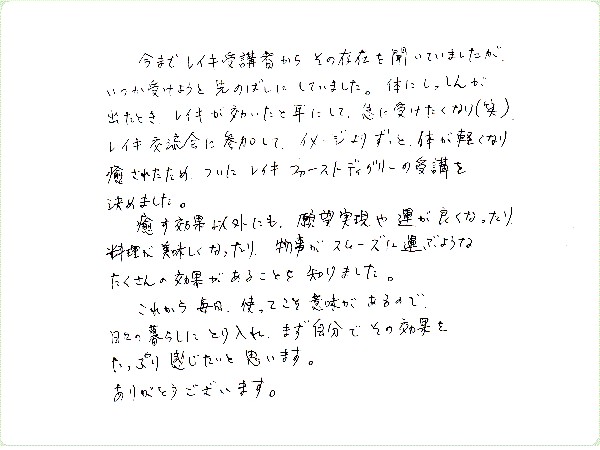 今までレイキ受講者からその存在を聞いていましたが、
いつか受けようと先のばしにしていました。体にしっしんが
出たとき レイキが効いたと耳にして、急に受けたくなり(笑)
レイキ交流会に参加して、イメージよりずっと体が軽くなり
癒されたため、ついにレイキ ファーストディグリーの受講を
決めました。
癒す効果以外にも、願望実現や運が良くなったり
料理が美味しくなったり、物事がスムーズに運ぶような
たくさんの効果があることを知りました。
これから毎日、使ってこそ意味があるので、
日々の暮らしにとり入れ、まず自分でその効果を
たっぷり感じたいと思います。
ありがとうございます。